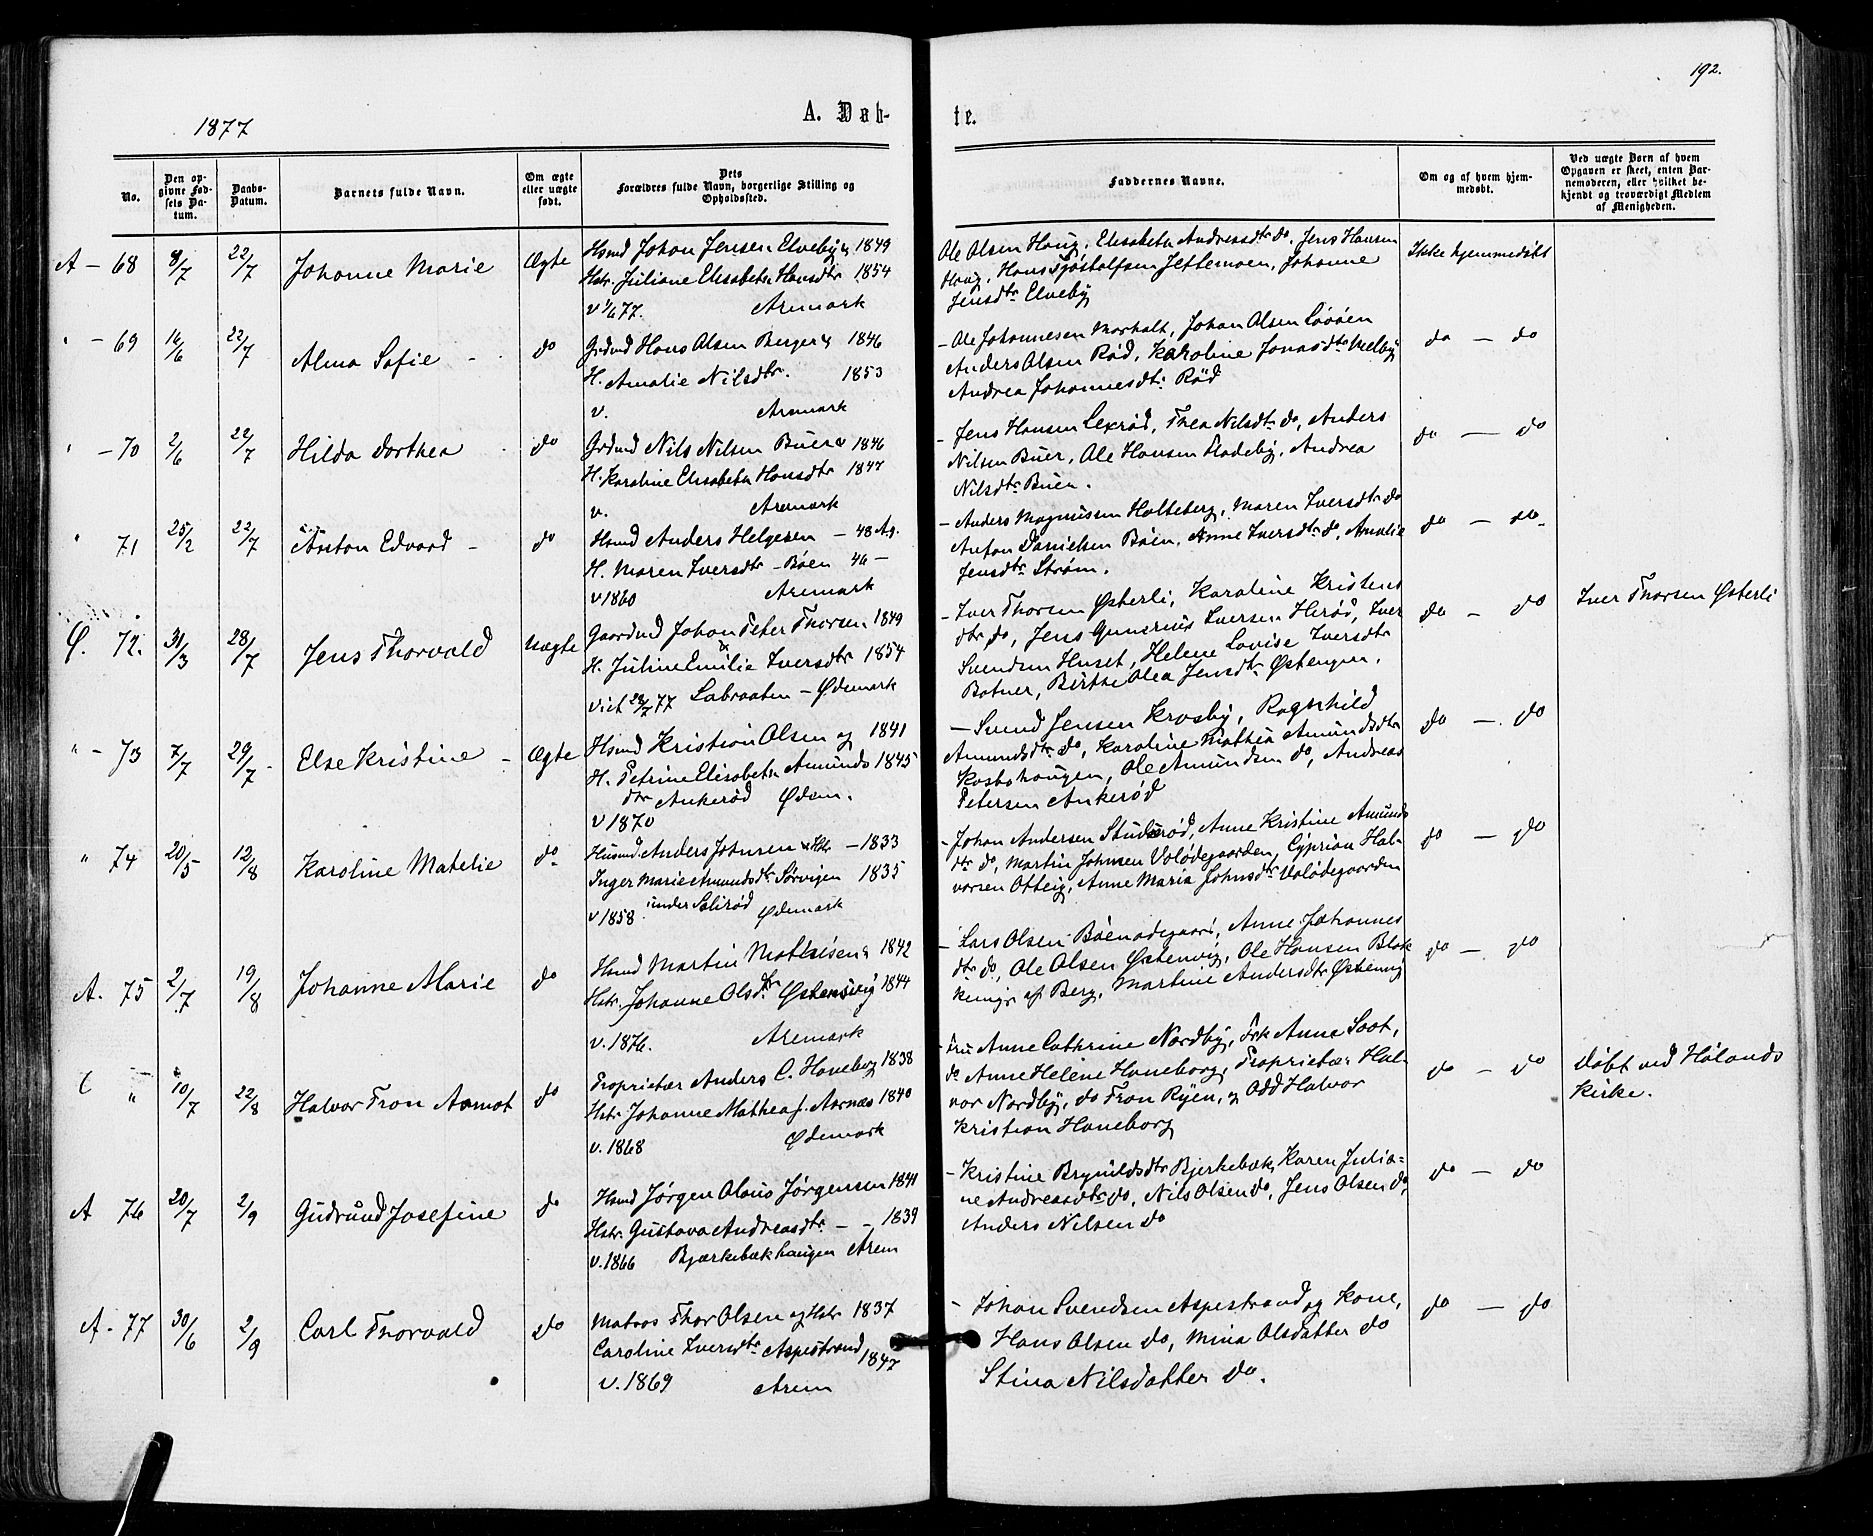 192.
1877
A. Døb-
te.
No.
Den op-
givne Fød-
sels Da-
tum.
Daabs-
Datum.
Barnets fulde Navn.
Om ægte
eller uægte
født.
Dets
Forældres fulde Navn, borgerlige Stilling og
Opholdssted.
Faddernes Navne.
Om og af hvem hjem-
medøbt.
Ved uægte Børn af hvem
Opgaven er skeet, enten Bar-
nemoderen, eller hvilket be-
kjendt og troværdigt Medlem
af Menigheden.
A - 68 8/7 22/7 Johanne Marie Ægte
Hsmd Johan Jensen Elveby & 1849
Hstr. Juliane Elisabeth Hansdtr 1854
v 1/6 77. Aremark
Ole Olsen Haug, Elisabeth Andreasdtr do, Jens Hansen
Haug, Hans Tjøstolfsen Jettemoen, Johanne
Jensdtr Elveby
Ikke hjemmedøbt
" - 69 16/6 22/7 Alma Sofie - do
Grdmd Hans Olsen Berger & 1846
H. Amalie Nilsdtr. 1853
v. Aremark
- Ole Johannesen Marholt, Johan Olsen
Anders Olsen Rød, Karoline Jonasdtr Melby
Andrea Johannesdtr Rød
do - do
" - 70 2/6 22/7 Hilda Dorthea do
Grdmd Nils Nilsen Buer & 1846
H. Karoline Elisabeth Hansdtr 1847
v. Aremark
- Jens Hansen Lexrød, Thea Nilsdtr do, Anders
Nilsen Buer, Ole Hansen Fladeby, Andrea
Nilsdtr Buer.
do - do
" 71 25/2 22/7 Anton Edvard - do
Hsmd Anders Helgesen - 48 Ag.
H. Maren Iversdtr - Bøen 46 -
v 1860 Aremark
- Anders Magnussen Holteberg, Maren Iversdtr do
Anton Danielsen Bøen, Anne Iversdtr do, Amalie
Jensdtr Strøm.
do - do
Ø. 72. 31/3 28/7 Jens Thorvald Uægte
Gaardmd Johan Peter Thorsen 1849
&
H. Juline Emilie Iversdtr 1854
viet 22/7 77 Labraaten - Ødemark
- Iver Thorsen Østerli, Karoline Kristens
dtr do, Jens Gunerius Iversen Herød, Iver
Svendsen Huset, Helene Lovise Iversdtr
Botner, Birthe Olea Jensdtr Østengen.
do - do
Iver Thorsen Østerli
" - 73 7/7 29/7 Else Kristine - Ægte
Hsmd Kristian Olsen og 1841
H. Petrine Elisabeth Amunds 1845
dtr Ankerød Ødem.
v 1870
- Svend Jensen Krosby, Ragnhild
Amundsdtr do, Karoline Mathea Amundsdtr
Kasbohaugen, Ole Amundsen do, Andreas
Petersen Ankerød
do - do
" 74 20/5 12/8 Karoline Matelie do
Husmd. Anders Johnsen & Hstr - 1833
Inger Marie Amundsdtr Sørvigen 1835
under Slirød
v 1858 Ødemark
- Johan Andersen Studerød, Anne Kristine Amunds
dtr do, Martin Johnsen Volødegaarden, Cyprian Hal-
vorsen Otteig, Anne Maria Johnsdtr Volødegaarden
do - do
A. 75 2/7 19/8 Johanne Marie do
Hsmd Martin Mathisen & 1842
Hstr. Johanne Olsdtr Østensvig 1844
v. 1876. Aremark
- Lars Olsen Bøenødegaard, Anne Johannes
dtr do, Ole Olsen Østenvig, Ole Hansen Blak
af Berg, Martine Andersdtr Østenvig
do - do
" 10/7 22/8 Halvor Tron Aamot do
Proprietær Anders C. Haneborg 1838
Hstr. Johanne Mathea f. Aarnæs 1840
v. 1868 Ødemark
- Fru Anne Cathrine Nordby, Frk Anne Soot,
do Anne Helene Haneborg, Proprietær Hal-
vor Nordby, do Tron Ryen, og Odd Halvor
Kristian Haneborg
do - do
Døbt ved Hølands
Kirke.
A 76 20/7 2/9 Gudrund Josefine do
Hsmd Jørgen Olaus Jørgensen 1841
Hstr. Gustava Andreasdtr. - - 1839
v. 1866 Bjærkebækhaugen Arem
- Kristine Brynildsdtr Bjerkebæk, Karen Julia-
ne Andreasdtr do, Nils Olsen do, Jens Olsen do,
Anders Nilsen do
do - do
A - 77 30/6 2/9 Carl Thorvald do
Matros Thor Olsen og Hstr 1837
Caroline Iversdtr Aspestrand 1847
v. 1869 Arem
- Johan Svendsen Aspestrand og Kone,
Hans Olsen do, Mina Olsdatter do
Stina Nilsdatter do.
do - do